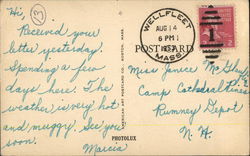 Hi,
Received your
letter yesterday.
Spending a few
days here. The
weather is very hot
and muggy. See you
soon.
Marcia
PHOTOLUX
WELLFLEET
AUG 14
6 PM
MASS
POST CARD
1
Miss Janice
Camp Cathedral Pines
Rumney Depot
N. H.